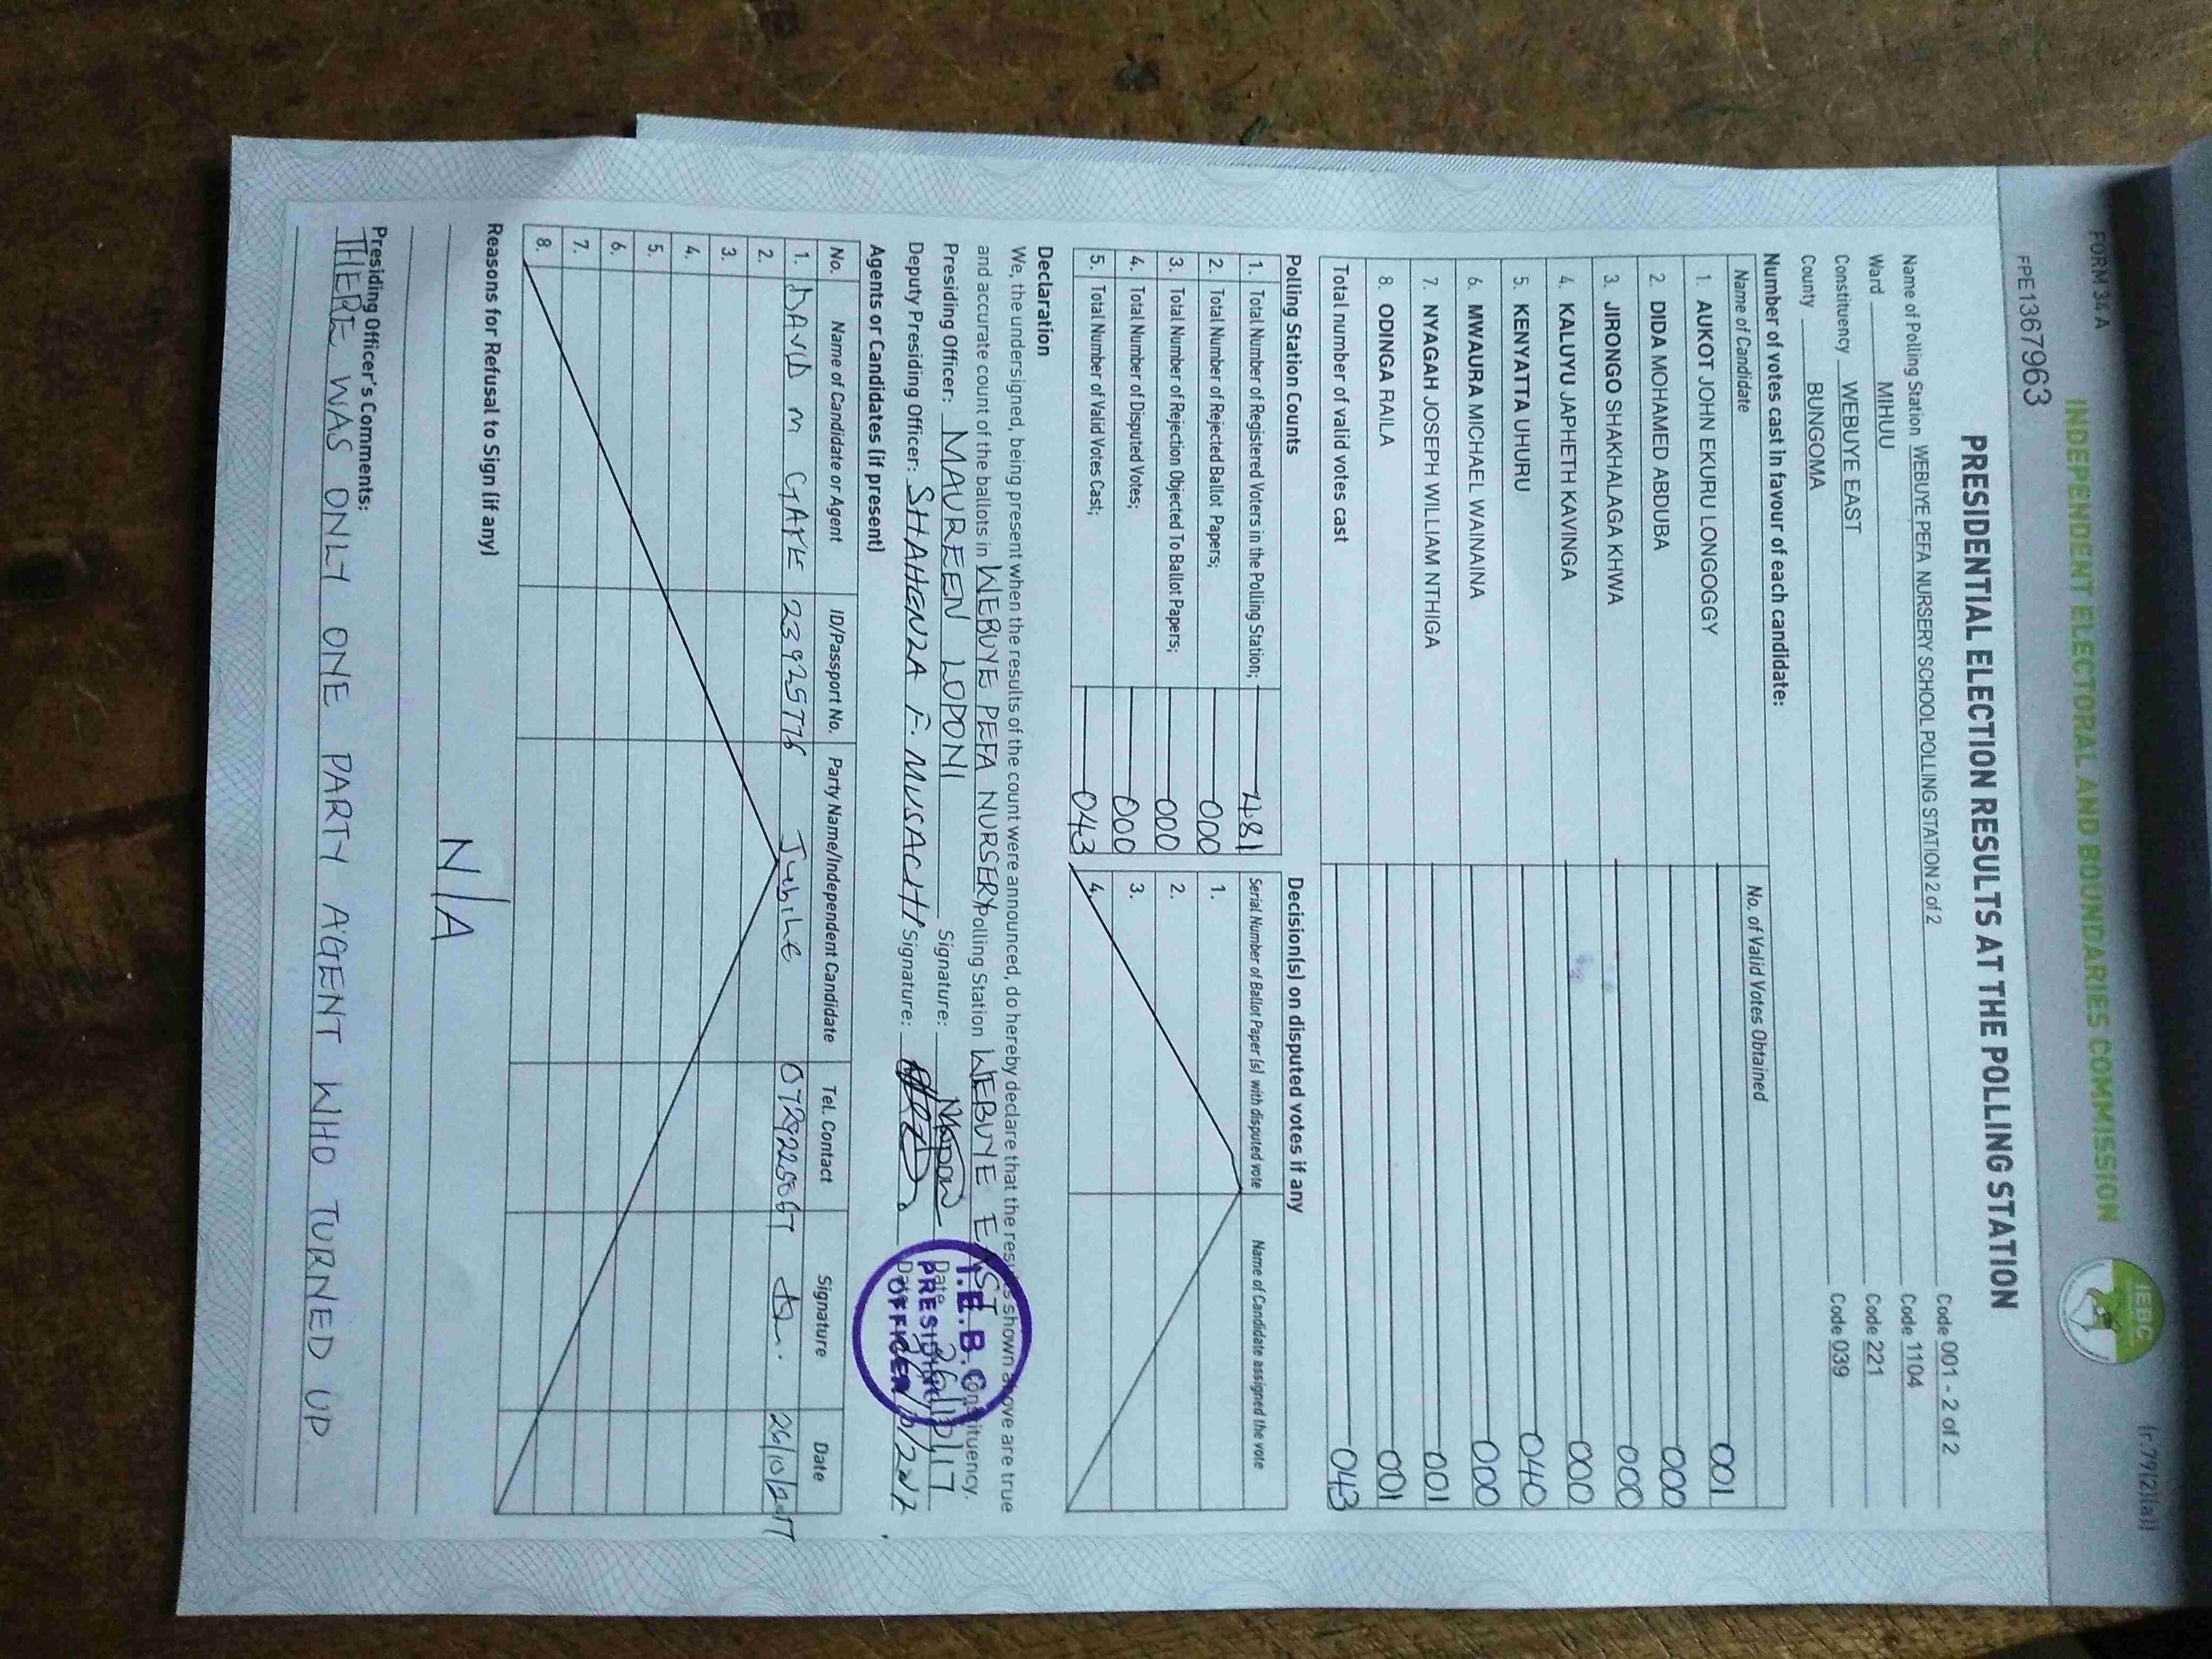 FORM 34 A
(r.79(2)(a))
INDEPENDENT ELECTORAL AND BOUNDARIES COMMISSION
IEBC
FPE1367963
PRESIDENTIAL ELECTION RESULTS AT THE POLLING STATION
Name of Polling Station WEBUYE PEFA NURSERY SCHOOL POLLING STATION 2 of 2 Code 001 - 2 of 2
Ward MIHUU Code 1104
Constituency WEBUYE EAST Code 221
County BUNGOMA Code 039
Number of votes cast in favour of each candidate:
Name of Candidate No. of Valid Votes Obtained
1. AUKOT JOHN EKURU LONGOGGY 001
2. DIDA MOHAMED ABDUBA 000
3. JIRONGO SHAKHALAGA KHWA 000
4. KALUYU JAPHETH KAVINGA 000
5. KENYATTA UHURU 040
6. MWAURA MICHAEL WAINAINA 000
7. NYAGAH JOSEPH WILLIAM NTHIGA 001
8. ODINGA RAILA 001
Total number of valid votes cast 043
Polling Station Counts
1. Total Number of Registered Voters in the Polling Station; 481
2. Total Number of Rejected Ballot Papers; 000
3. Total Number of Rejection Objected To Ballot Papers; 000
4. Total Number of Disputed Votes; 000
5. Total Number of Valid Votes Cast; 043
Decision(s) on disputed votes if any
Serial Number of Ballot Paper (s) with disputed vote Name of Candidate assigned the vote
1.
2.
3.
4.
Declaration
We, the undersigned, being present when the results of the count were announced, do hereby declare that the results shown above are true
and accurate count of the ballots in WEBUYE PEFA NURSERY Polling Station WEBUYE EAST Constituency.
Presiding Officer: MAUREEN LOPONI Signature: Date 26/10/17
Deputy Presiding Officer: SHAHENZA F. MUSACHI Signature: Date
I.E.B.C
PRESIDING
OFFICER
Agents or Candidates (if present)
No. Name of Candidate or Agent ID/Passport No. Party Name/Independent Candidate Tel. Contact Signature Date
1. DAVID M 23925776 Jubilee 26/10/2017
2.
3.
4.
5.
6.
7.
8.
Reasons for Refusal to Sign (if any)
N/A
Presiding Officer's Comments:
THERE WAS ONLY ONE PARTY AGENT WHO TURNED UP.